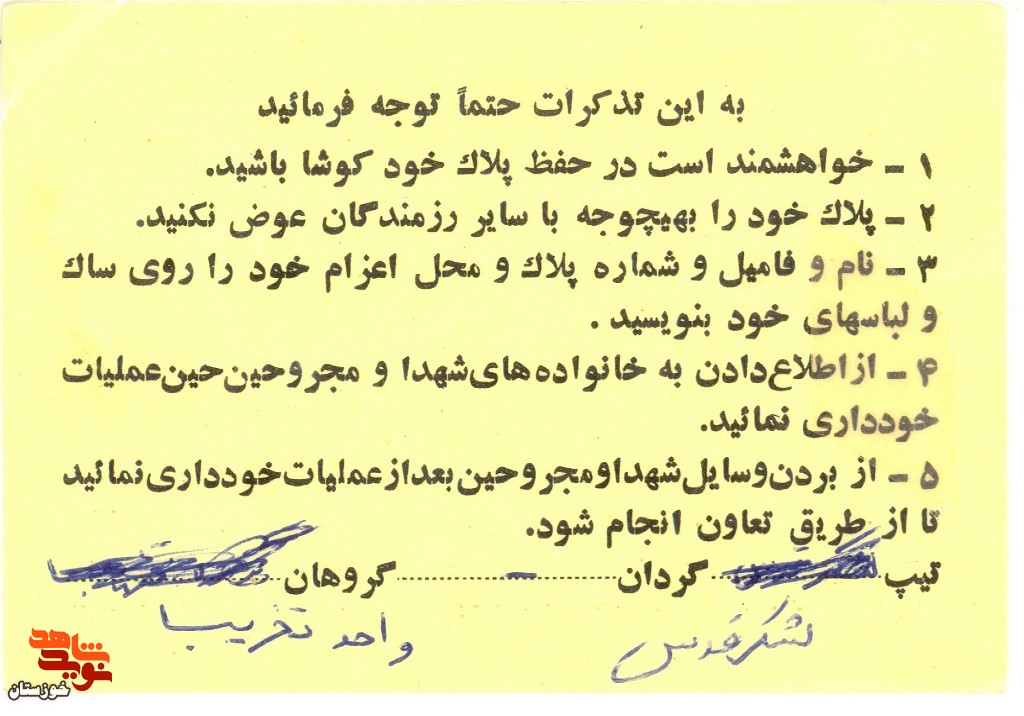 به این تذکرات حتماً توجه فرمائید
۱ ـ خواهشمند است در حفظ پلاك خود کوشا باشید.
۲ ـ پلاك خود را بهیچوجه با سایر رزمندگان عوض نکنید.
۳ ـ نام و فامیل و شماره پلاك و محل اعزام خود را روی ساك
و لباسهای خود بنویسید .
۴ ـ از اطلاع دادن به خانواده های شهدا و مجروحین حین عملیات
خودداری نمائید.
۵ ـ از بردن وسایل شهدا و مجروحین بعد از عملیات خودداری نمائید
تا از طریق تعاون انجام شود.
تیپ ........ گردان ........ـ........ گروهان ........
لشکر قدس واحد تخریب
شاهد
نوید
خوزستان